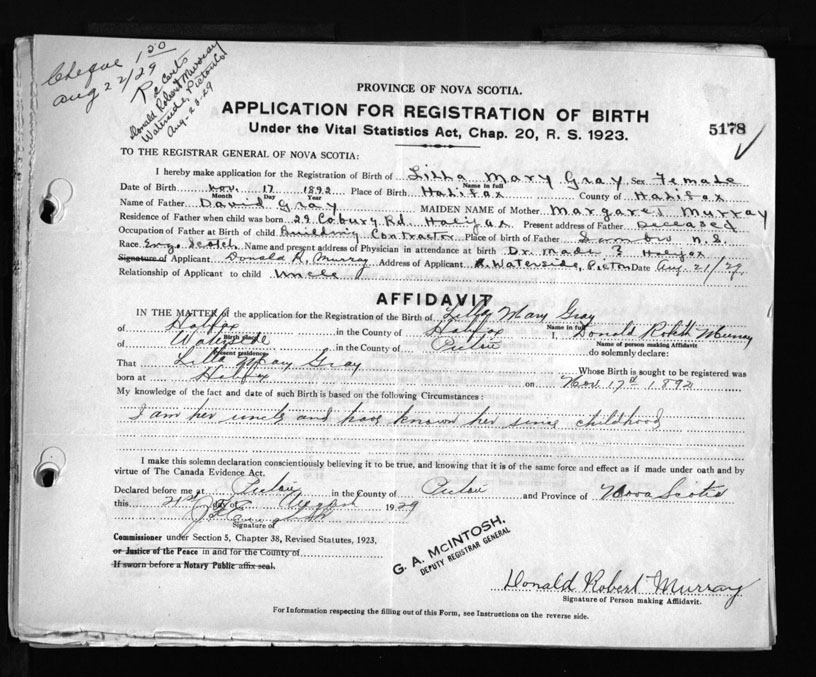 Cheque 1 50
Aug 22/29
Donald Robert Murray
Waterside, Pictou Co
Aug-23-29
PROVINCE OF NOVA SCOTIA.
APPLICATION FOR REGISTRATION OF BIRTH
5178
Under the Vital Statistics Act, Chap. 20, R. S. 1923.
TO THE REGISTRAR GENERAL OF NOVA SCOTIA:
I hereby make application for the Registration of Birth of Lilla Mary Gray Sex Female
Name in full
Date of Birth Nov. 17 1892 Place of Birth Halifax County of Halifax
Month Day Year
Name of Father David Gray MAIDEN NAME of Mother Margaret Murray
Residence of Father when child was born 29 Coburg Rd. Halifax Present address of Father Deceased
Occupation of Father at Birth of child Building Contractor Place of birth of Father Sambro N.S.
Race Eng. Scotch Name and present address of Physician in attendance at birth Dr. Halifax
Signature of Applicant Donald R. Murray Address of Applicant Waterside, Pictou Date Aug. 21/29.
Relationship of Applicant to child Uncle
AFFIDAVIT
IN THE MATTER of the application for the Registration of the Birth of Lilla Mary Gray
Name in full
of Halifax in the County of Halifax I, Donald Robert Murray
Birth place Name of person making Affidavit
of Waterside in the County of Pictou do solemnly declare:
Present residence
That Lilla Mary Gray Whose Birth is sought to be registered was
born at Halifax on Nov. 17th 1892
My knowledge of the fact and date of such Birth is based on the following Circumstances:
I am her uncle and have known her since childhood
I make this solemn declaration conscientiously believing it to be true, and knowing that it is of the same force and effect as if made under oath and by
virtue of The Canada Evidence Act.
Declared before me at Pictou in the County of Pictou and Province of Nova Scotia
this 21st day of August 1929
Signature of
Commissioner under Section 5, Chapter 38, Revised Statutes, 1923,
or Justice of the Peace in and for the County of
If sworn before a Notary Public affix seal.
G. A. McINTOSH,
DEPUTY REGISTRAR GENERAL
Donald Robert Murray
Signature of Person making Affidavit.
For Information respecting the filling out of this Form, see Instructions on the reverse side.